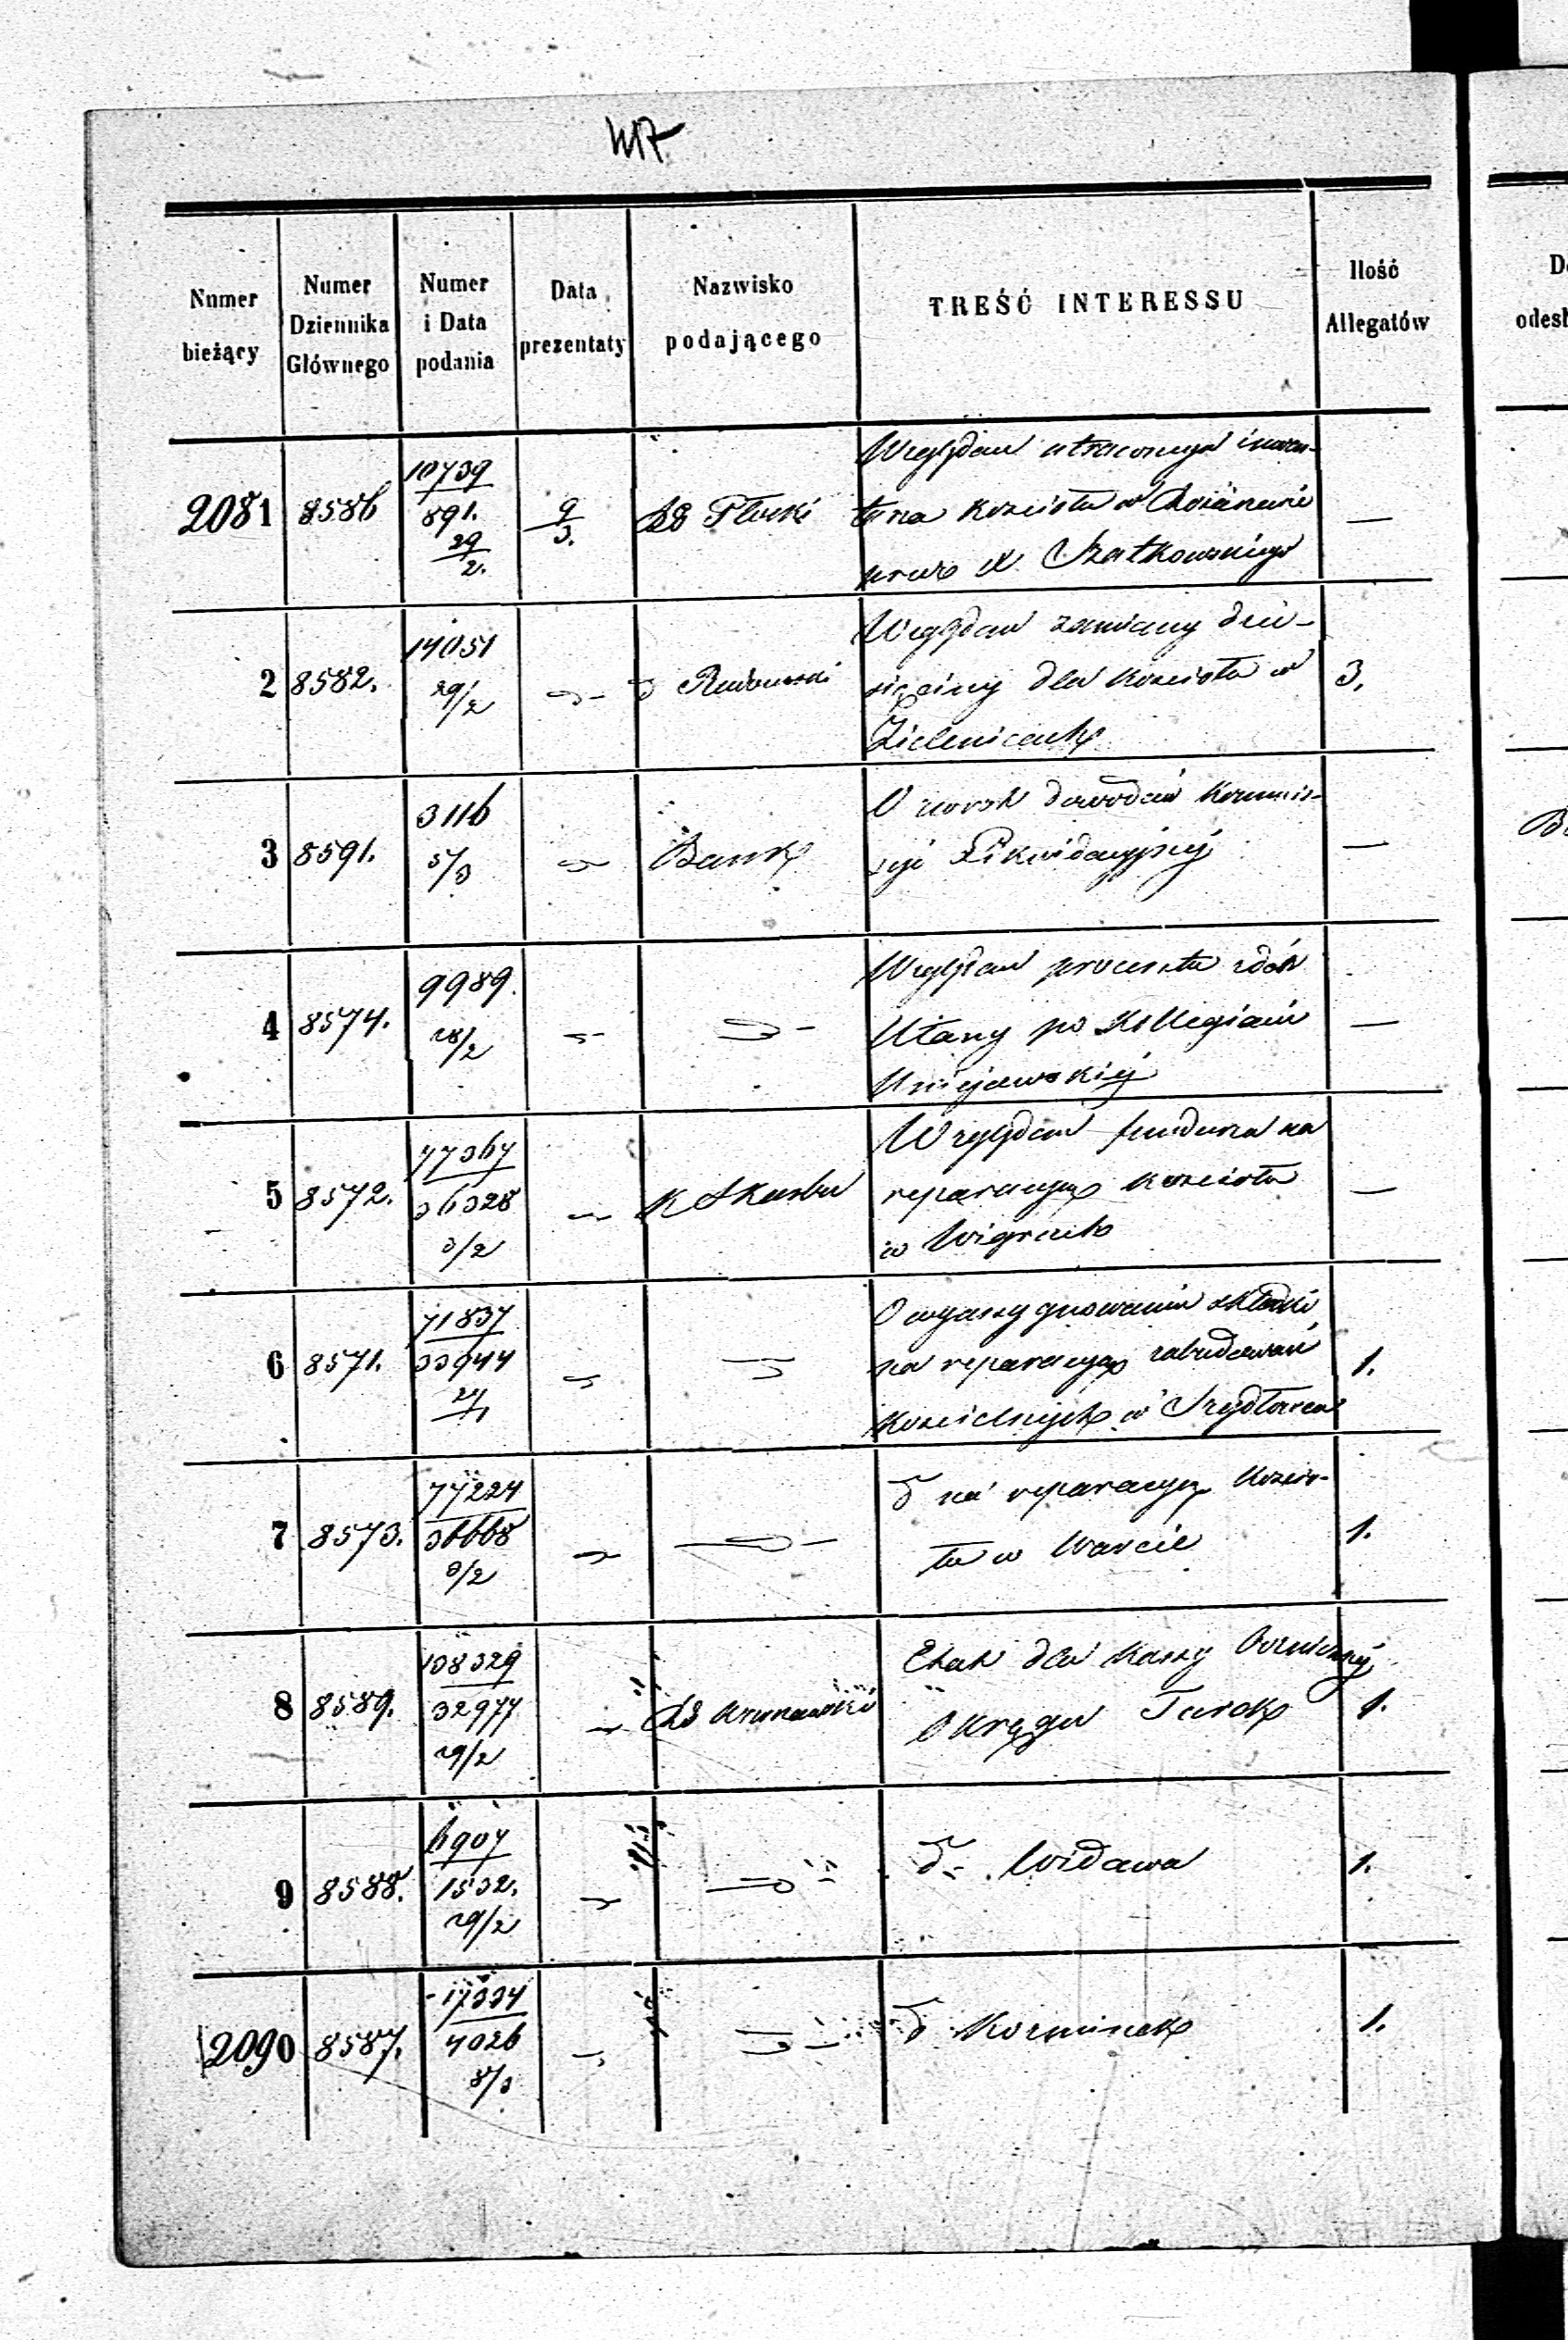 Numer bieżący
Numer Dziennika Głównego
Numer i Data podania
Data prezentaty
Nazwisko podającego
TREŚĆ INTERESSU
Ilość Allegatów
2081 8586 10739 891. 29/2. 9/3. Płocki
Względem utraconego inwen-
tarza Kościoła w
przez X. Szatkowskiego
—
2 8582. 14051 29/2 Radomski
Względem zamiany dzie-
sięciny dla Kościoła w
Zielenicach
3.
3 8591. 3116 5/3 Bank
O zwrot dowodów Kommis-
syi Likwidacyjnéj
—
4 8574. 9989. 28/2
Względem procentu od
po Kollegiacie
Uniejowskiéj
—
5 8572. 77367 36328 3/2 K Skarbu
Względem funduszu na
reparacyą Kościoła
w Wigrach
—
6 8571. 71837 33944 27/1
O wyassygnowanie składki
na reparacyą zabudowań
Kościelnych w Szydłowcu
1.
7 8573. 77224 36668 3/2
d na reparacyą Kościo-
ła w Warcie
1.
8 8589. 138329 32977 29/2
Etat dla Kassy Bożniczéj
Okręgu Turek
1.
9 8588. 6907 1532. 29/2
d- Widawa
1.
2090 8587. 17334 4026 8/3
d Koźminek
1.
D
odesł